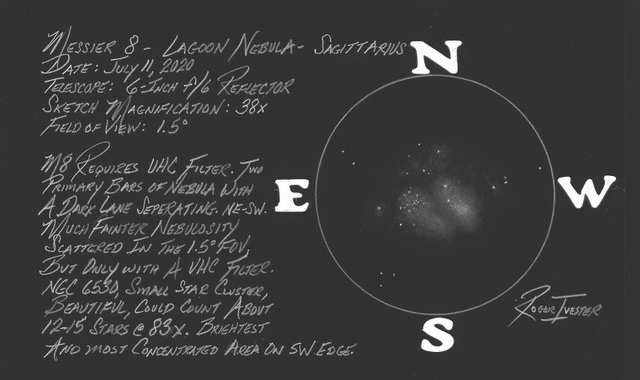 Messier 8 - Lagoon Nebula - Sagittarius
Date: July 11, 2020
Telescope: 6-Inch f/6 Reflector
Sketch Magnification: 38x
Field of View: 1.5°
M8 Requires UHC Filter. Two
Primary Bars of Nebula with
A Dark Lane Seperating. NE-SW.
Much Fainter Nebulosity
Scattered In The 1.5° FOV,
But Only with A UHC Filter.
NGC 6530, Small Star Cluster,
Beautiful, Could Count About
12-15 Stars @ 83x. Brightest
And most Concentrated Area On SW Edge.
N
E
W
S
Roger Ivester